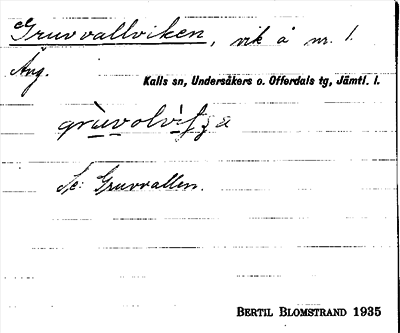 Gruvvallviken, vik å nr. 1.
Äng.
Kalls sn, Undersåkers o. Offerdals tg, Jämtl. l.
Se: Gruvvallen.
BERTIL BLOMSTRAND 1935